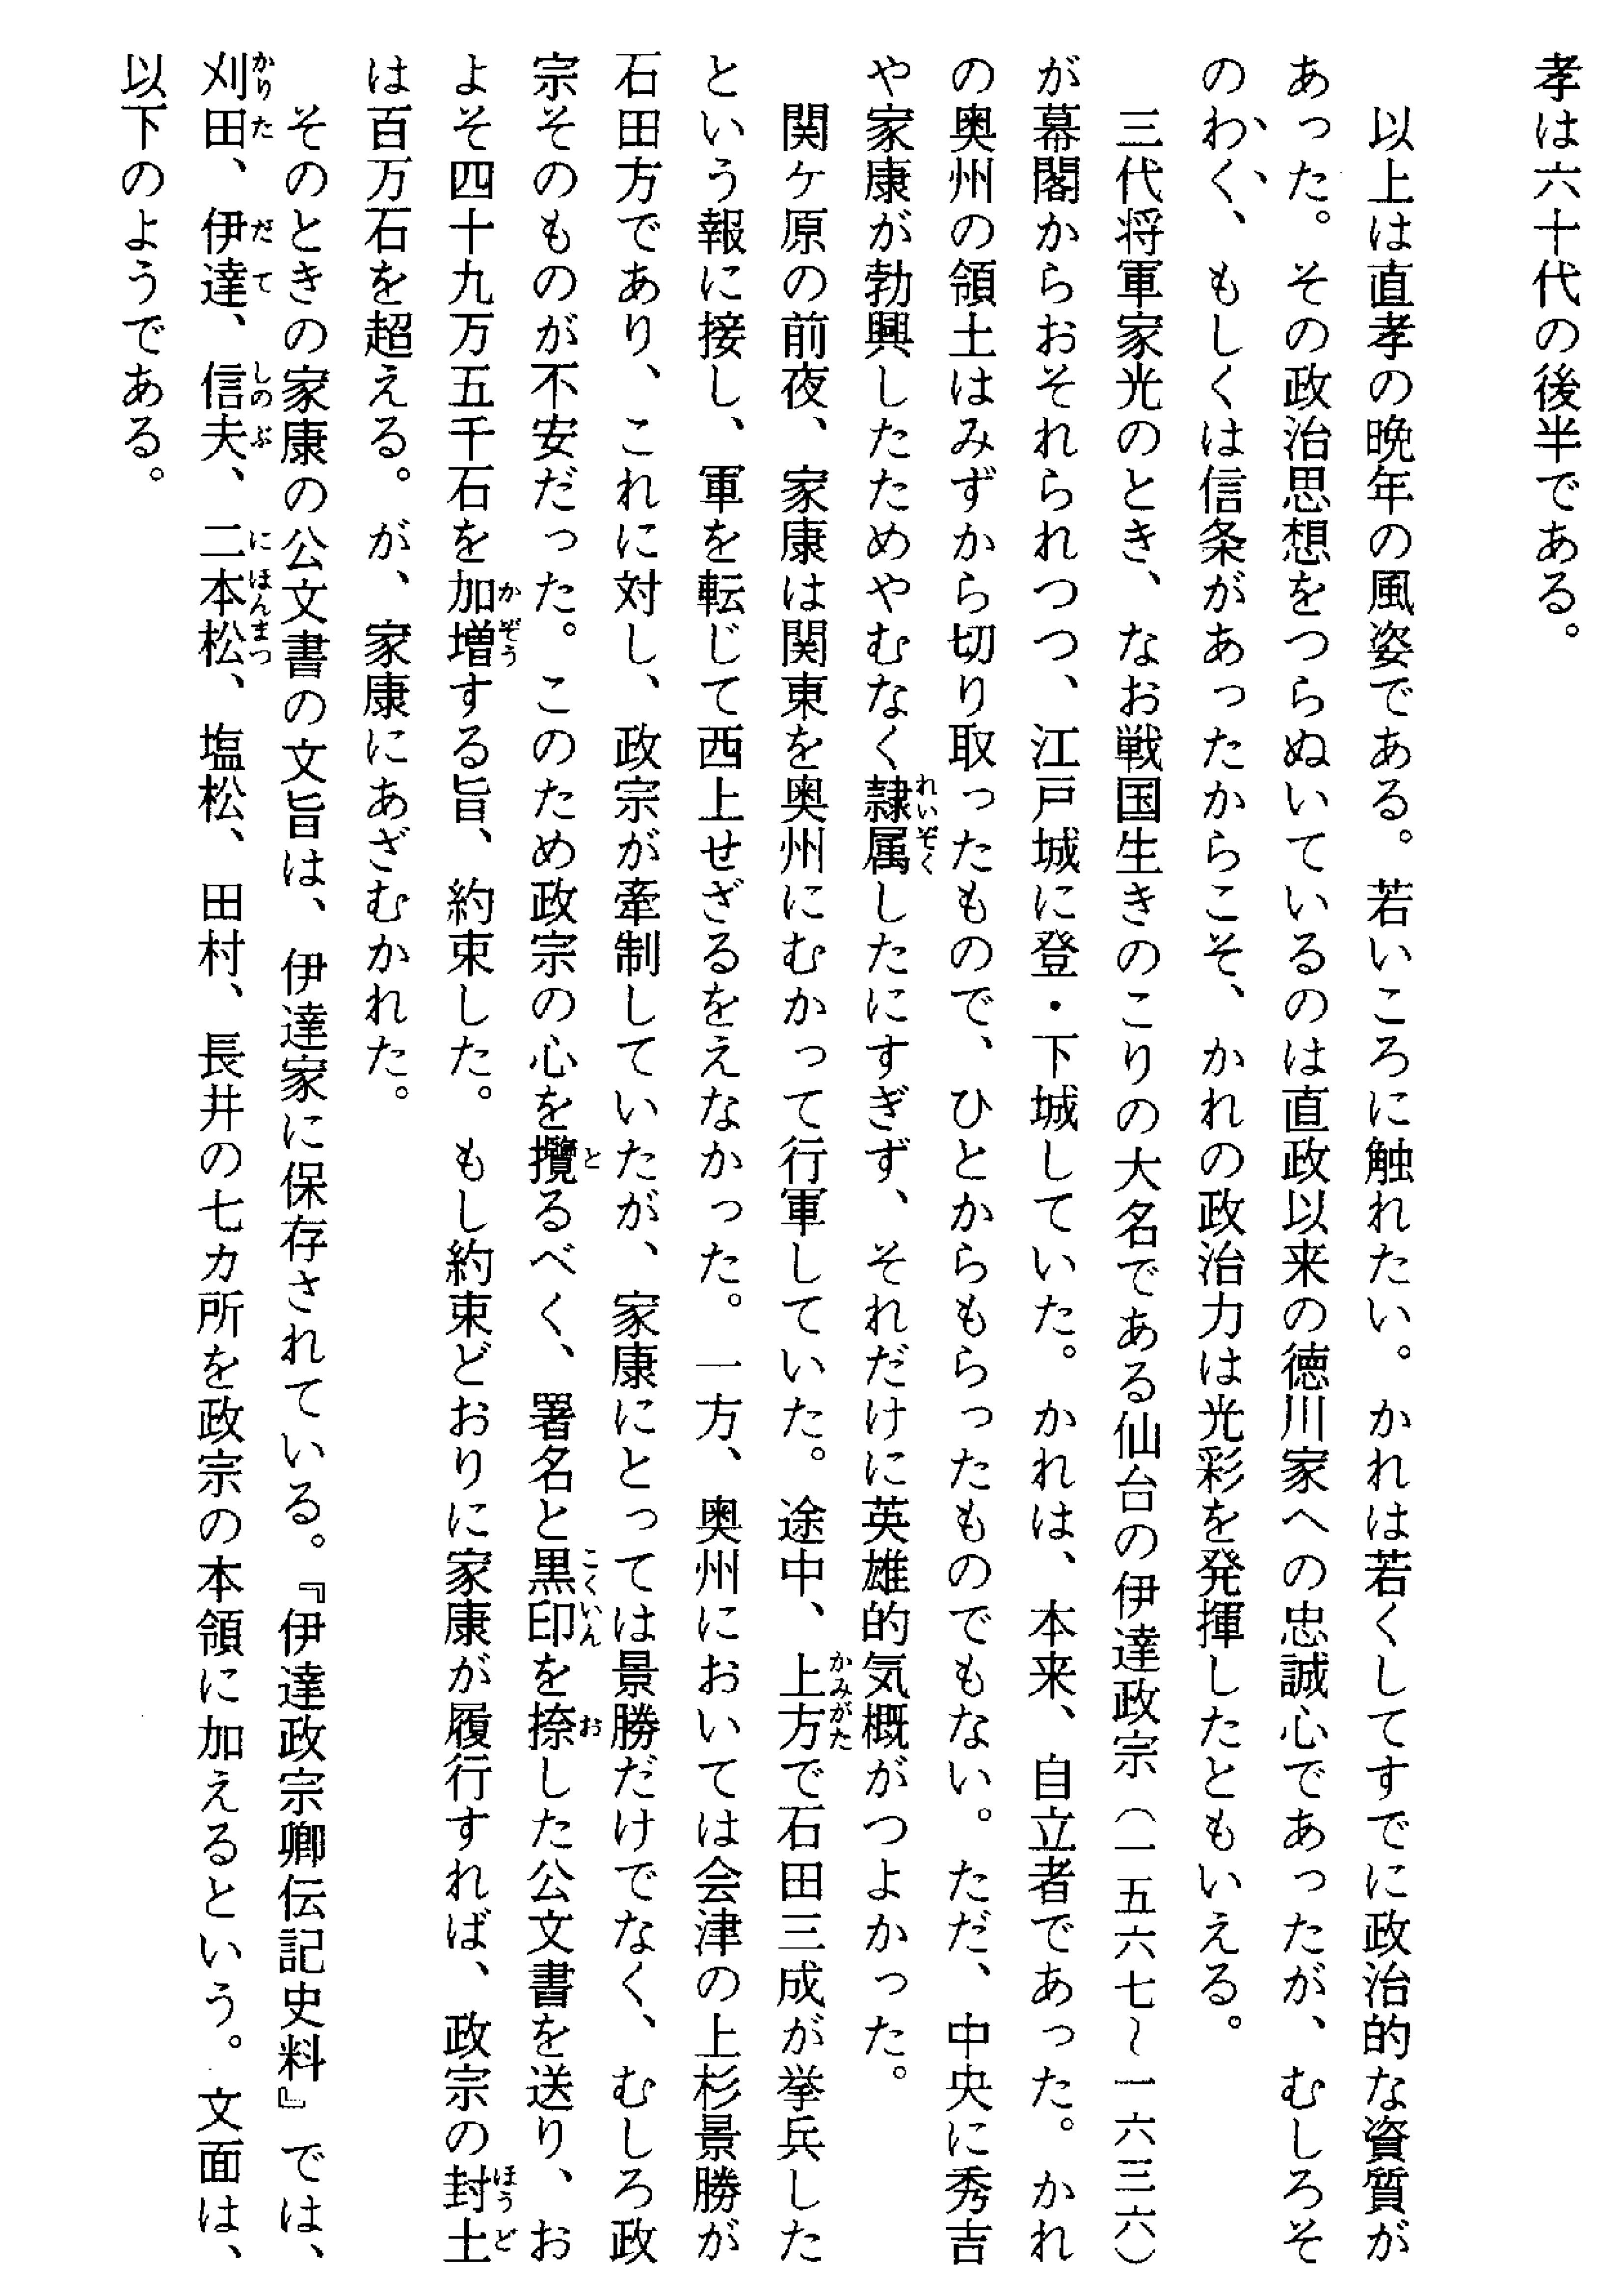 孝は六十代の後半である。
以上は直孝の晩年の風姿である。若いころに触れたい。かれは若くしてすでに政治的な資質が
あった。その政治思想をつらぬいているのは直政以来の徳川家への忠誠心であったが、むしろそ
のわく、もしくは信条があったからこそ、かれの政治力は光彩を発揮したともいえる。
三代将軍家光のとき、なお戦国生きのこりの大名である仙台の伊達政宗（一五六七～一六三六）
が幕閣からおそれられつつ、江戸城に登・下城していた。かれは、本来、自立者であった。かれ
の奥州の領土はみずから切り取ったもので、ひとからもらったものでもない。ただ、中央に秀吉
や家康が勃興したためやむなく隷属したにすぎず、それだけに英雄的気概がつよかった。
関ケ原の前夜、家康は関東を奥州にむかって行軍していた。途中、上方で石田三成が挙兵した
という報に接し、軍を転じて西上せざるをえなかった。一方、奥州においては会津の上杉景勝が
石田方であり、これに対し、政宗が牽制していたが、家康にとっては景勝だけでなく、むしろ政
宗そのものが不安だった。このため政宗の心を攬るべく、署名と黒印を捺した公文書を送り、お
よそ四十九万五千石を加増する旨、約束した。もし約束どおりに家康が履行すれば、政宗の封土
は百万石を超える。が、家康にあざむかれた。
そのときの家康の公文書の文旨は、伊達家に保存されている。『伊達政宗卿伝記史料』では、
刈田、伊達、信夫、二本松、塩松、田村、長井の七カ所を政宗の本領に加えるという。文面は、
以下のようである。